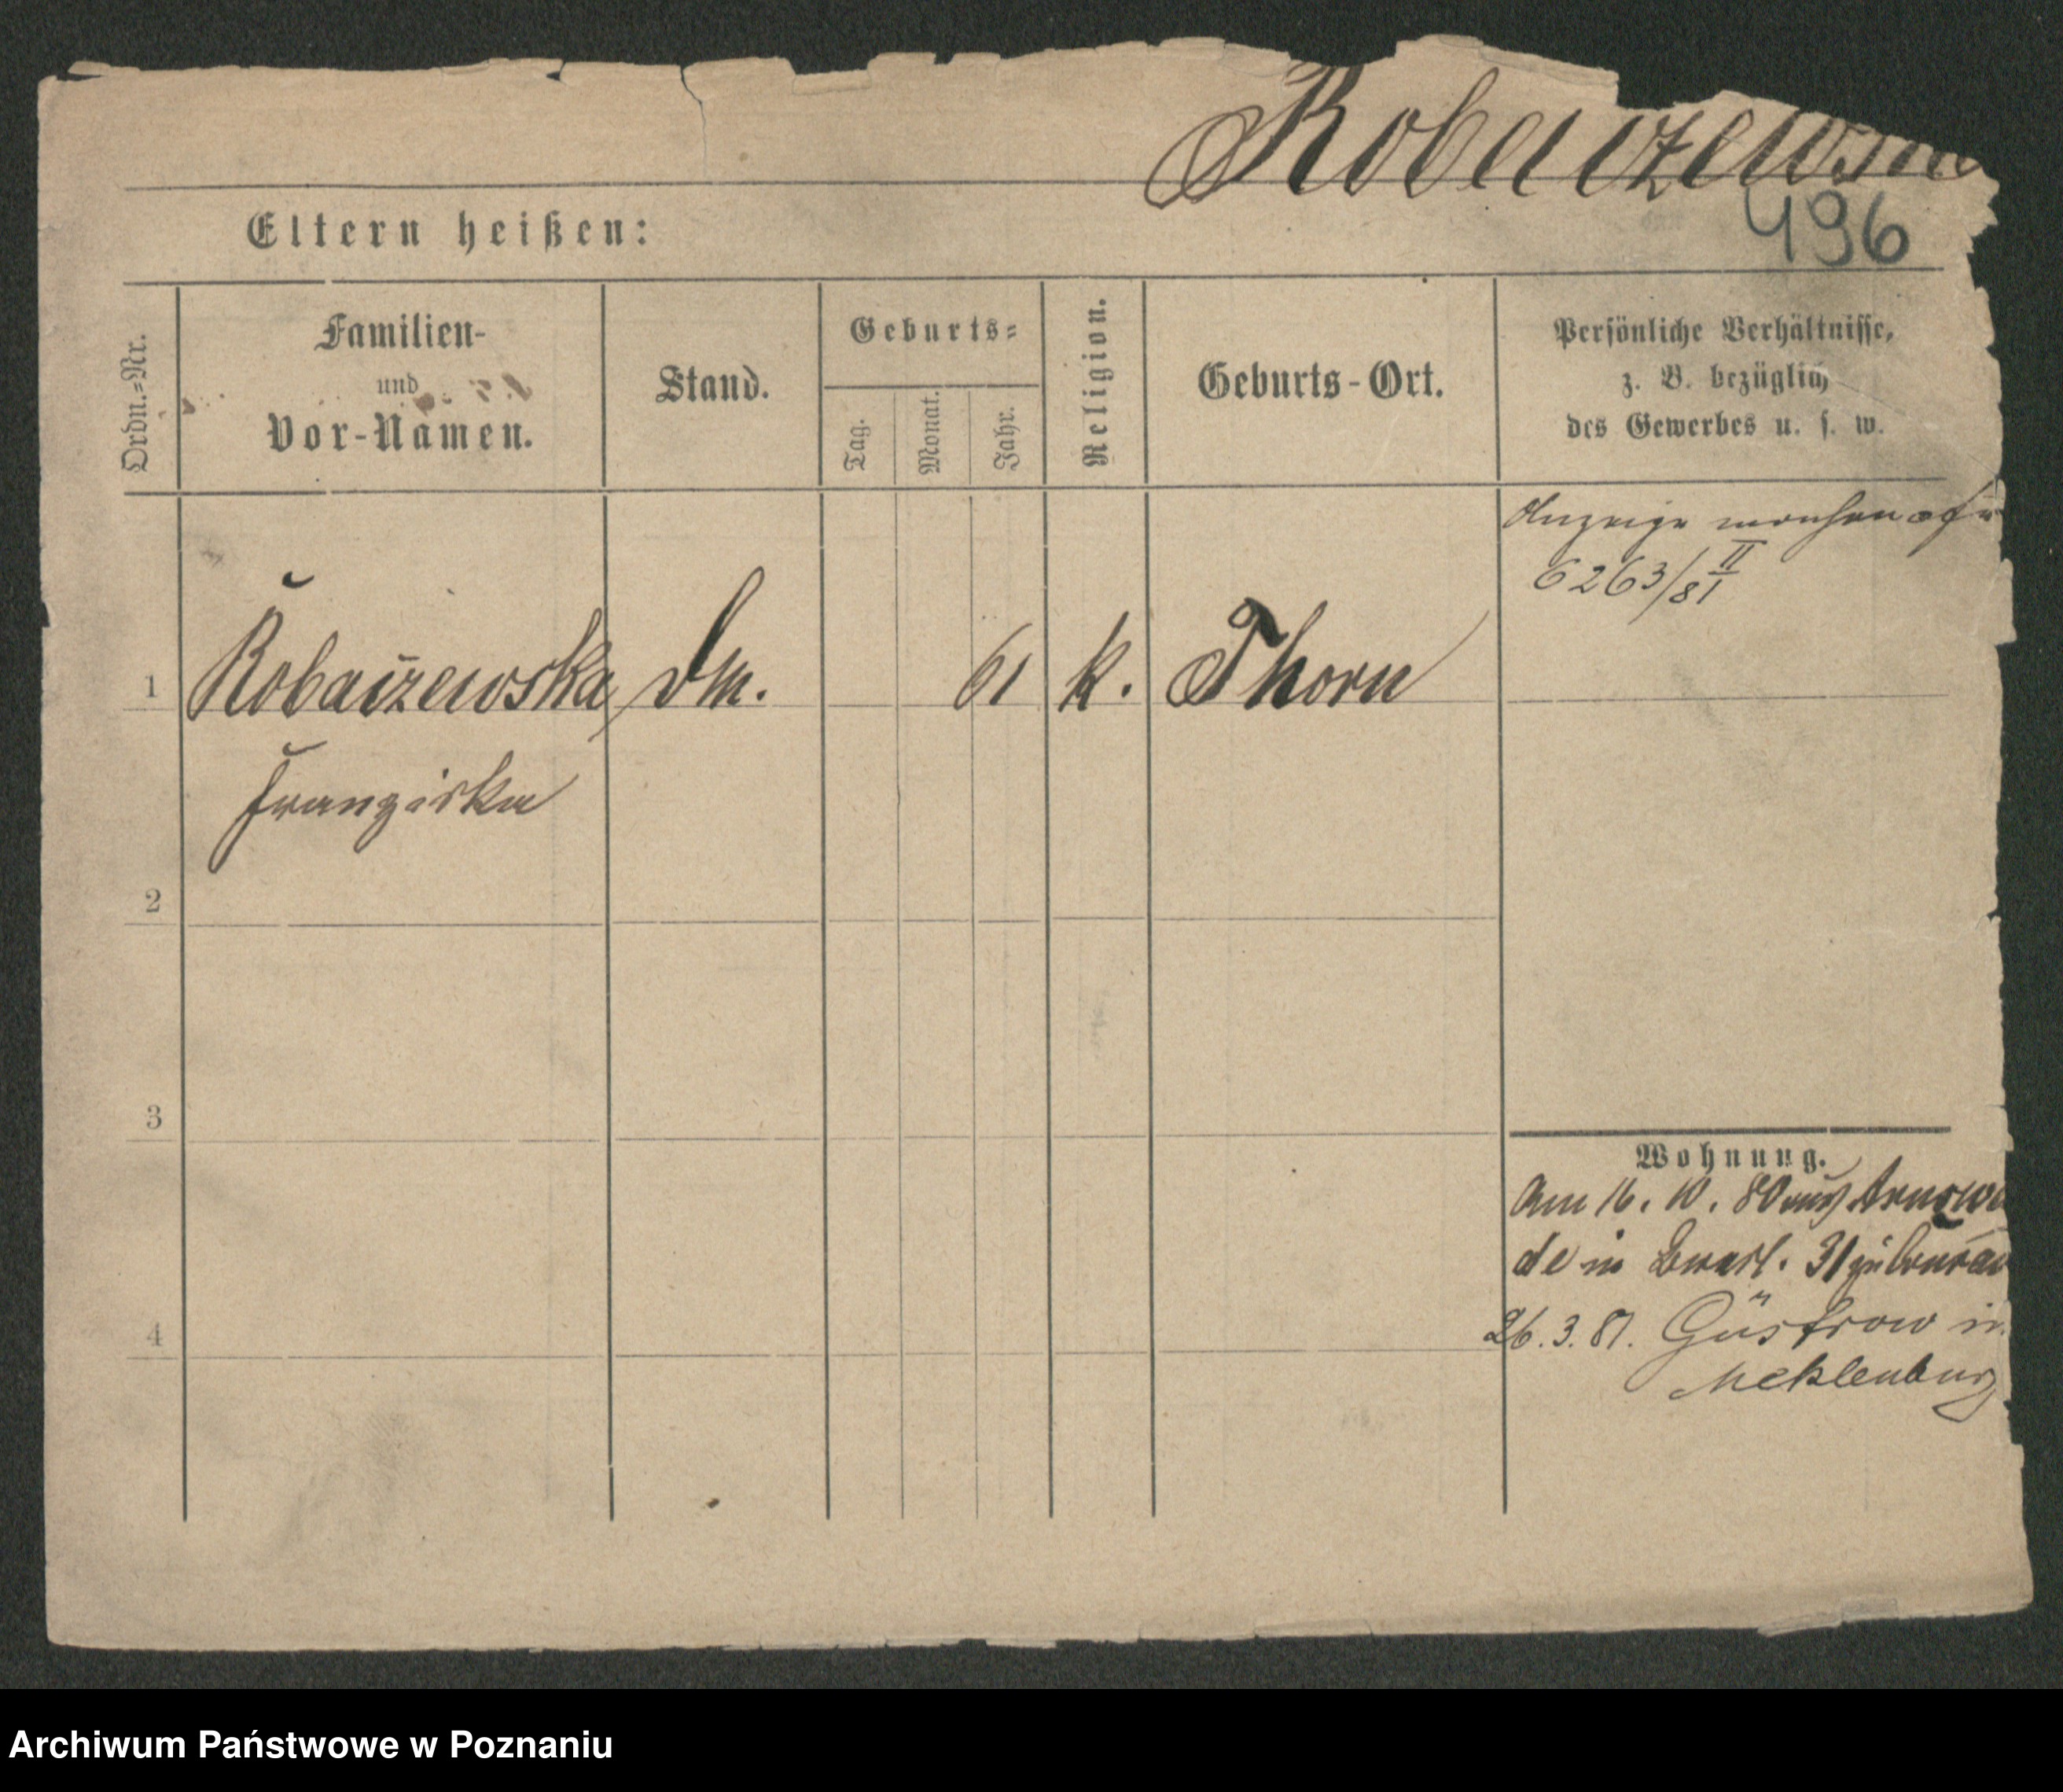 Robaczewska
496
Eltern heißen:
Ordn.=Nr.
Familien-
und
Vor-Namen.
Stand.
Geburts=
Tag.
Monat.
Jahr.
Religion.
Geburts-Ort.
Persönliche Verhältnisse,
z. B. bezüglich
des Gewerbes u. s. w.
Anzeige
6263/II 81
1 Robaczewska Dm. 61 k. Thorn
Franziska
2
3
4
Wohnung.
Am 16. 10. 80 aus Arnswal
de in 31
26.3.81. Güstrow in
Meklenburg
Archiwum Państwowe w Poznaniu